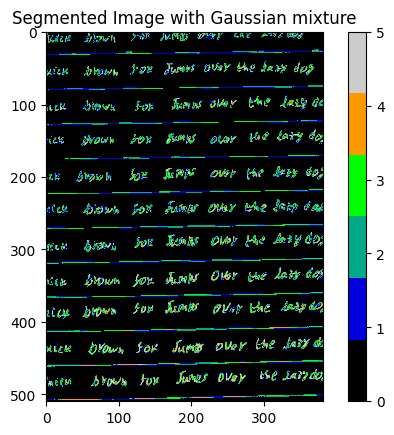 Segmented Image with Gaussian mixture
0
100
200
300
400
500
0 100 200 300
5
4
3
2
1
0
brown fox Jumps over the lazy dog
brown fox Jumps over the lazy dog
ick brown fox Jumps over the lazy do
ick brown fox Jumps over the lazy do
ick brown fox Jumps over the lazy do
ick brown fox Jumps over the lazy do
ick brown fox Jumps over the lazy do
ick brown fox Jumps over the lazy do
ick brown fox Jumps over the lazy do
ick brown fox Jumps over the lazy do
ick brown fox Jumps over the lazy do